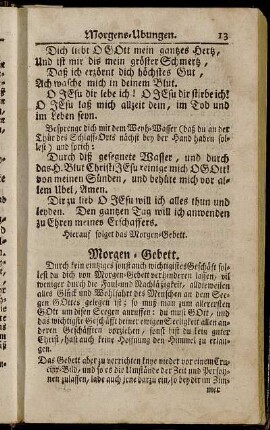 Morgens-Ubungen. 13
Dich liebt O GOtt mein gantzes Hertz,
Und ist mir dis mein gröster Schmertz,
Daß ich erzörnt dich höchstes Gut,
Ach wasche mich in deinem Blut.
O JEsu dir lebe ich! O JEsu dir stirbe ich!
O JEsu laß mich allzeit dein, im Tod und
im Leben seyn.
Besprenge dich mit dem Weyh-Wasser (daß du an der
Thür des Schlaff-Orts nächst bey der Hand haben sol-
lest) und sprich:
Durch diß gesegnete Wasser, und durch
das H. Blut Christi JEsu reinige mich O GOtt!
von meinen Sünden, und behüte mich vor al-
lem Ubel, Amen.
Dir zu lieb O JEsu will ich alles thun und
leyden. Den gantzen Tag will ich anwenden
zu Ehren meines Erschaffers.
Hierauf folget das Morgen-Gebett.
Morgen-Gebett.
Durch kein eintziges sonst auch wichtigistes Geschäft sol-
lest du dich von Morgen-Gebett verhindern lassen, vil
weniger durch die Faul- und Nachläßigkeit, alldieweilen
alles Glück und Wohlfahrt des Menschen an dem See-
gen GOttes gelegen ist; so muß man zum allerersten
GOtt um disen Seegen anruffen: du must GOtt, und
das wichtigste Geschäfft deiner ewigen Seeligkeit allen an-
deren Geschäfften vorziehen, sonst bist du kein guter
Christ, hast auch keine Hoffnung den Himmel zu erlan-
gen.
Das Gebett aber zu verrichten knye nieder vor einem Cru-
cifix-Bild, und so es die Umstände der Zeit und Persoh-
nen zulassen, lade auch jene darzu ein, so bey dir im Zim-
mer